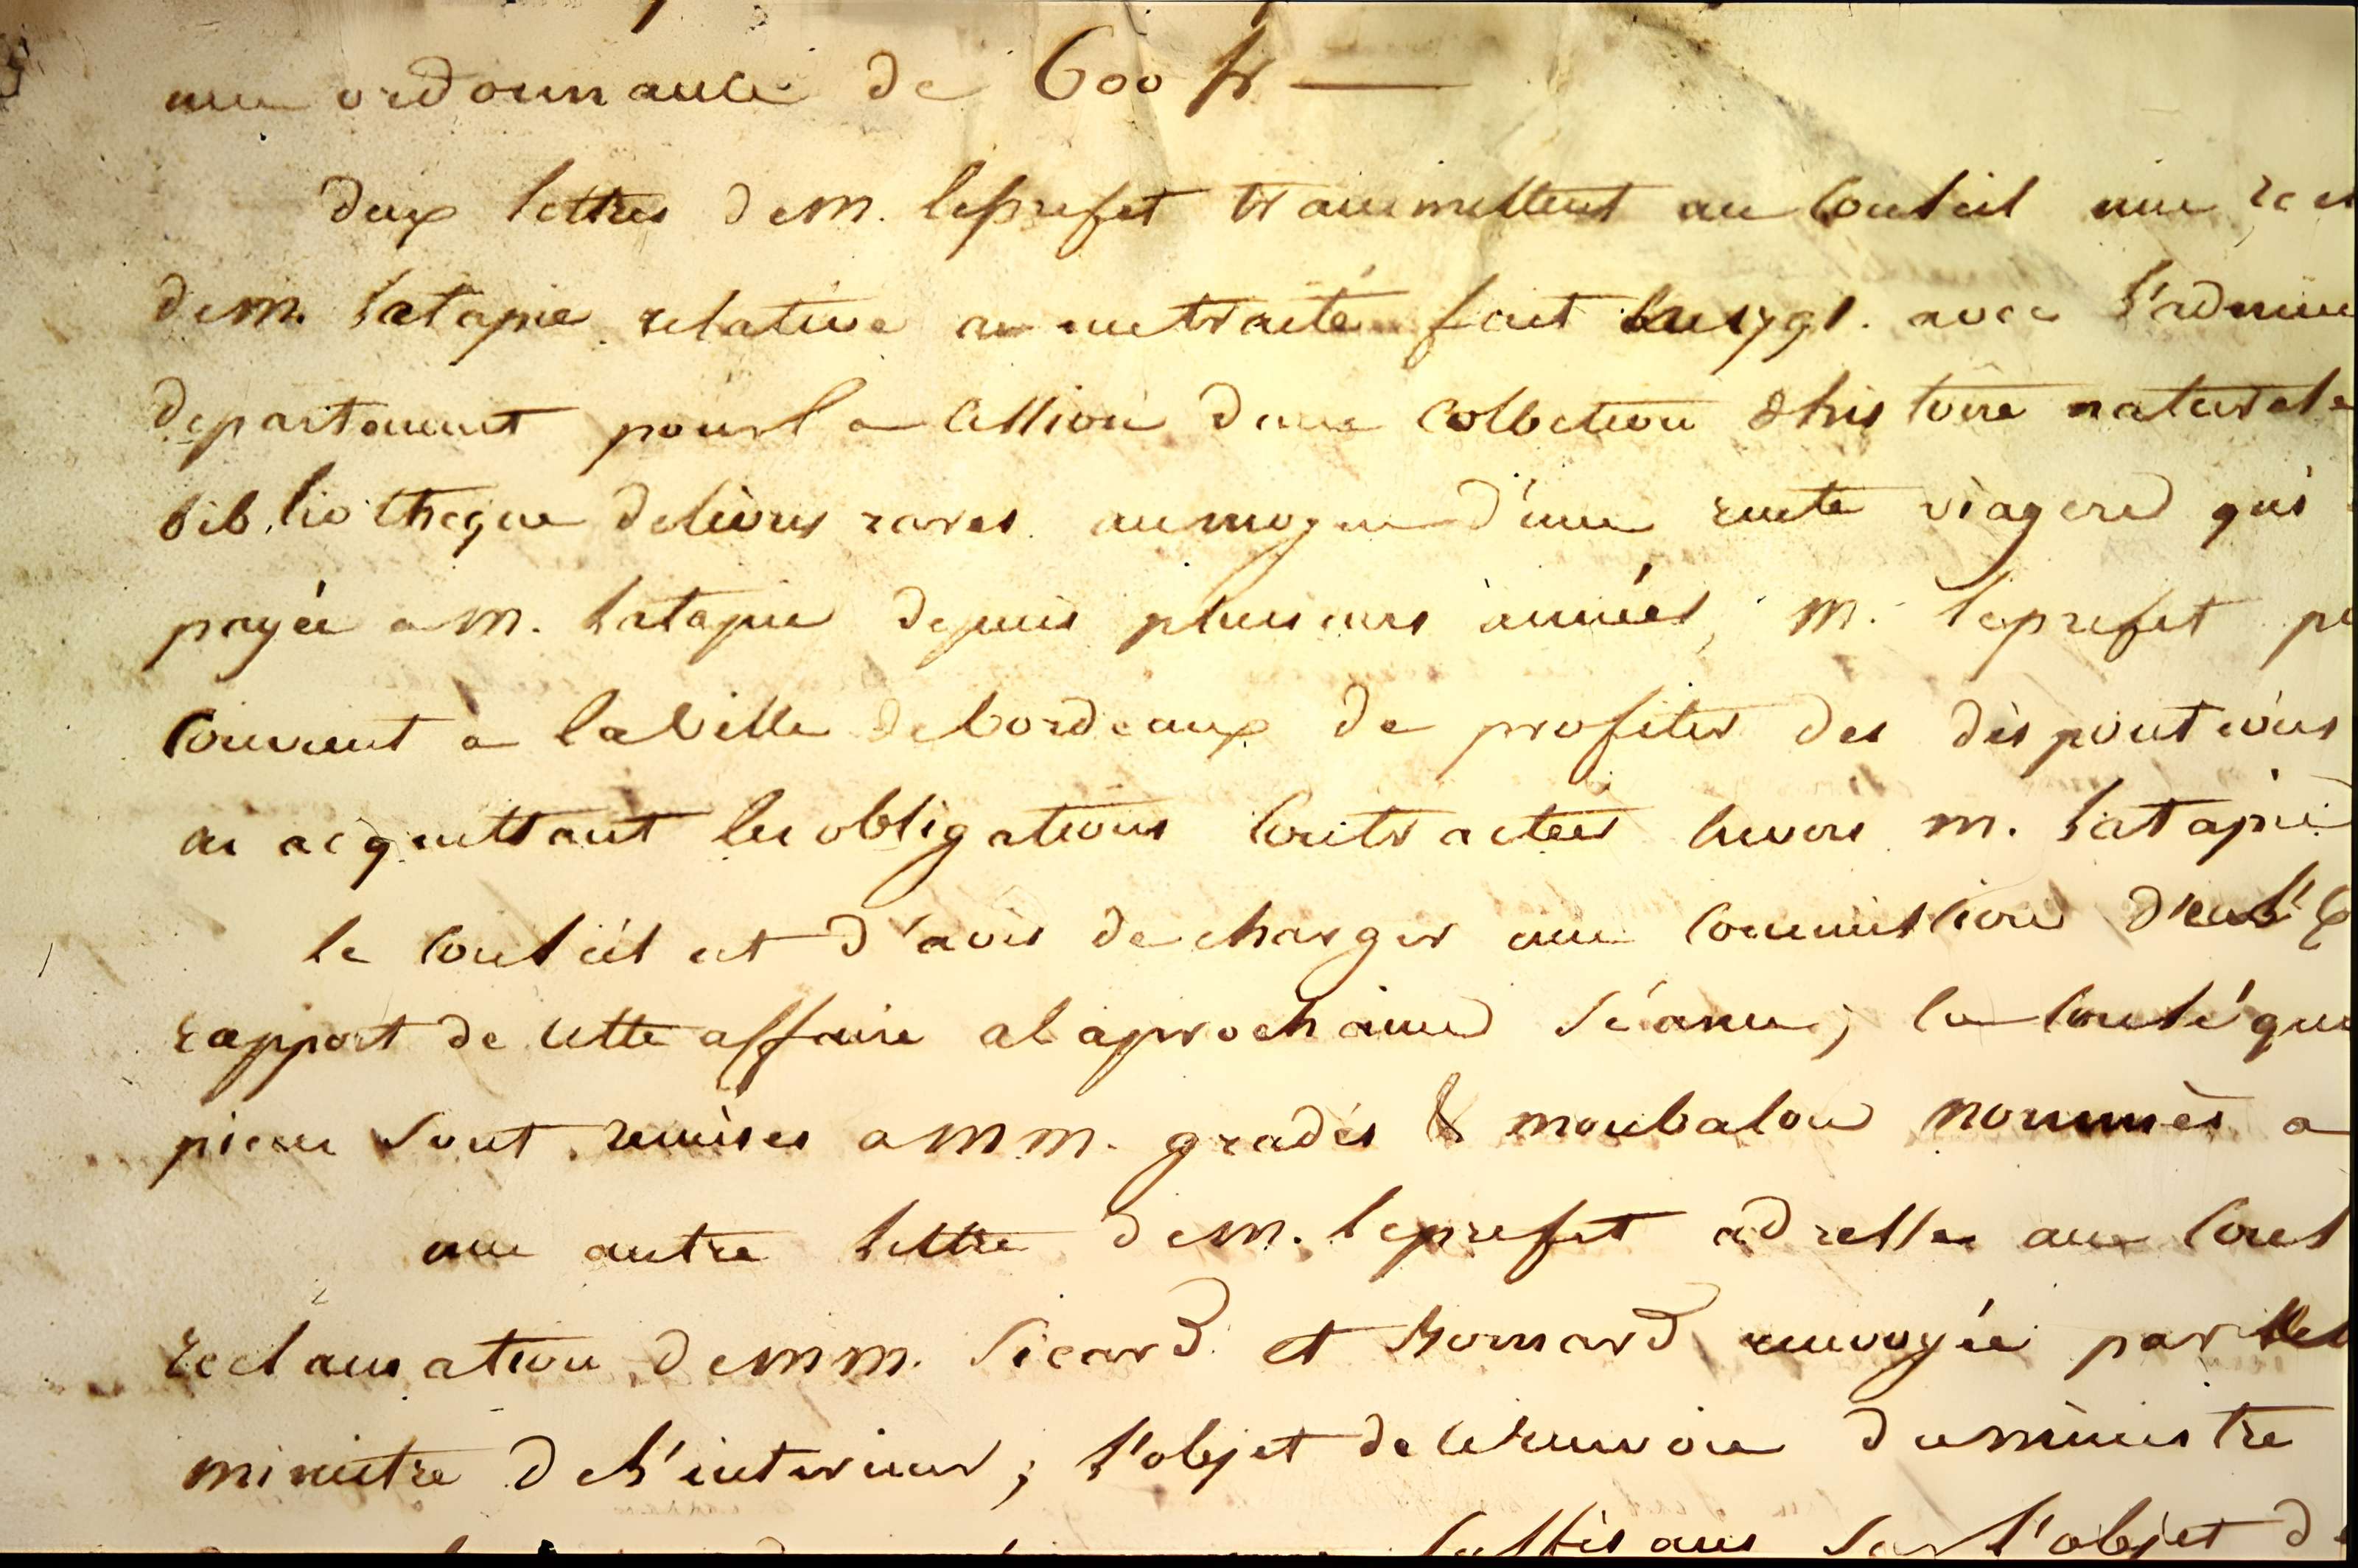 une ordonnance de 600 fr —
deux lettres de m. le prefet transmettent au Conseil une
de m. latapie relative a un traité fait en 1791. avec l'admin
departement pour la Cession d'une Collection d'histoire naturele
bibliotheque de livres rares au moyen d'une rente viagere qui
payée a m. latapie depuis plusieurs années, m. le prefet
Convient a la Ville de bordeaux de profiter des dispositions
en acquittant les obligations Contractées envers m. latapie
le Conseil est d'avis de charger une Commission d'en
rapport de cette affaire a la prochaine Séance;
pieces Sont remises a mm. gradis & monbalon nommés a
une autre lettre de m. le prefet adresse au Cons
reclamation de mm. Sicard et renvoyée par
ministre de l'interieur; l'objet de ce renvoi du ministre
Sur l'objet d